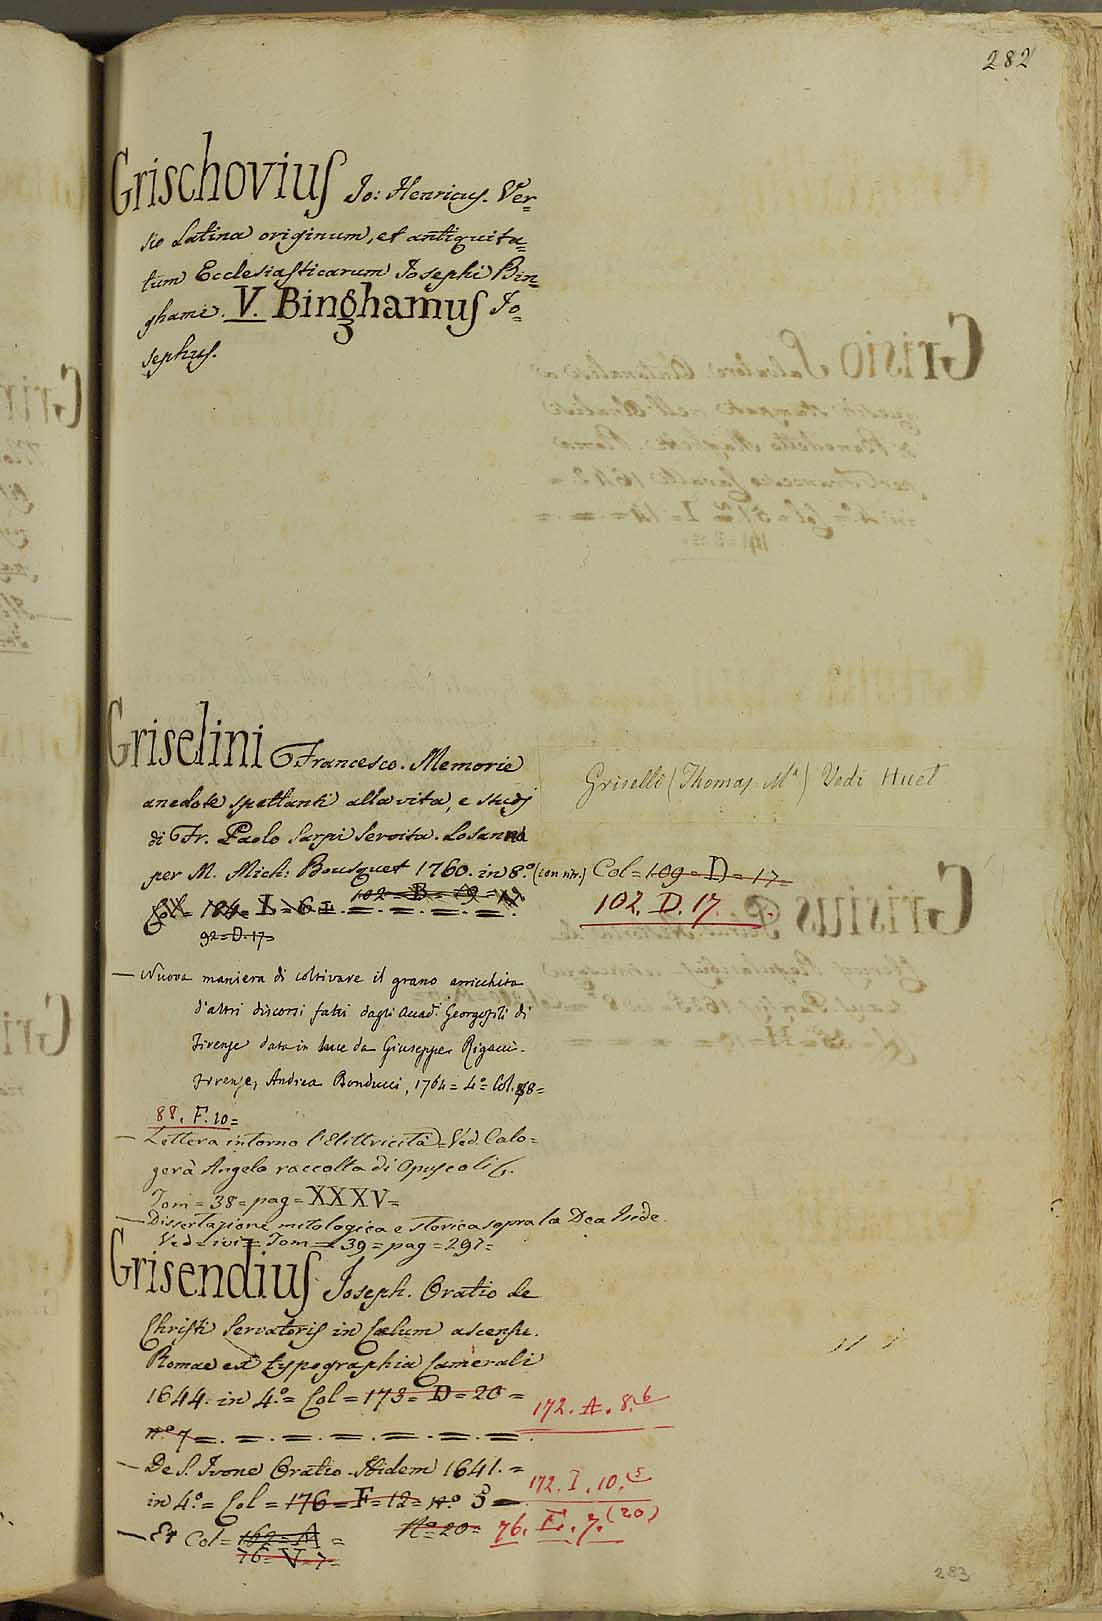 282
Grischovius Jo: Henricus. Ver=
sio Latina originum, et antiquita=
tum Ecclesiasticarum Josephi Bin=
ghami. V. Binghamus Jo=
sephus.
Griselini Francesco. Memorie
anedote spettanti alla vita, e studj
di Fr. Paolo Sarpi Servita. Losanna
per M. Mich: Bousquet 1760. in 8.º (con ritr.) Col = 109 = D = 17 =
102 = B = 19 =
Col = 104 = I = 6 =
102. D. 17.
92 = D. 17
Griselli (Thomas Mª) Vedi Huet
— Nuova maniera di coltivare il grano arricchita
d'altri discorsi fatti dagli Accad. Georgofili di
Firenze data in luce da Giuseppe Rigacci.
Firenze, Andrea Bonducci, 1764 = 4º Col. 88 =
88. F. 10 =
— Lettera intorno l'Elettricità = Ved. Calo=
gerà Angelo raccolta di Opuscoli &.
Tom = 38 = pag = XXXV =
— Dissertazione mitologica e storica sopra la Dea Iside.
Ved = ivi = Tom = 39 = pag = 297 =
Grisendius Joseph. Oratio de
Christi Servatoris in Cælum ascensu.
Romae ex typographia Camerali
1644. in 4.º = Col = 173 = D = 20 =
172. A. 8. 6
nº 7 = . = . = . = . = . = . = .
— De S. Ivone Oratio Ibidem 1641. =
172. I. 10. 5
in 4.º = Col = 176 = F = 12 = nº 5 =
— Et Col = 162 = A =
Nº 20 = 76. E. 7. (20)
76 = V = 7 =
283